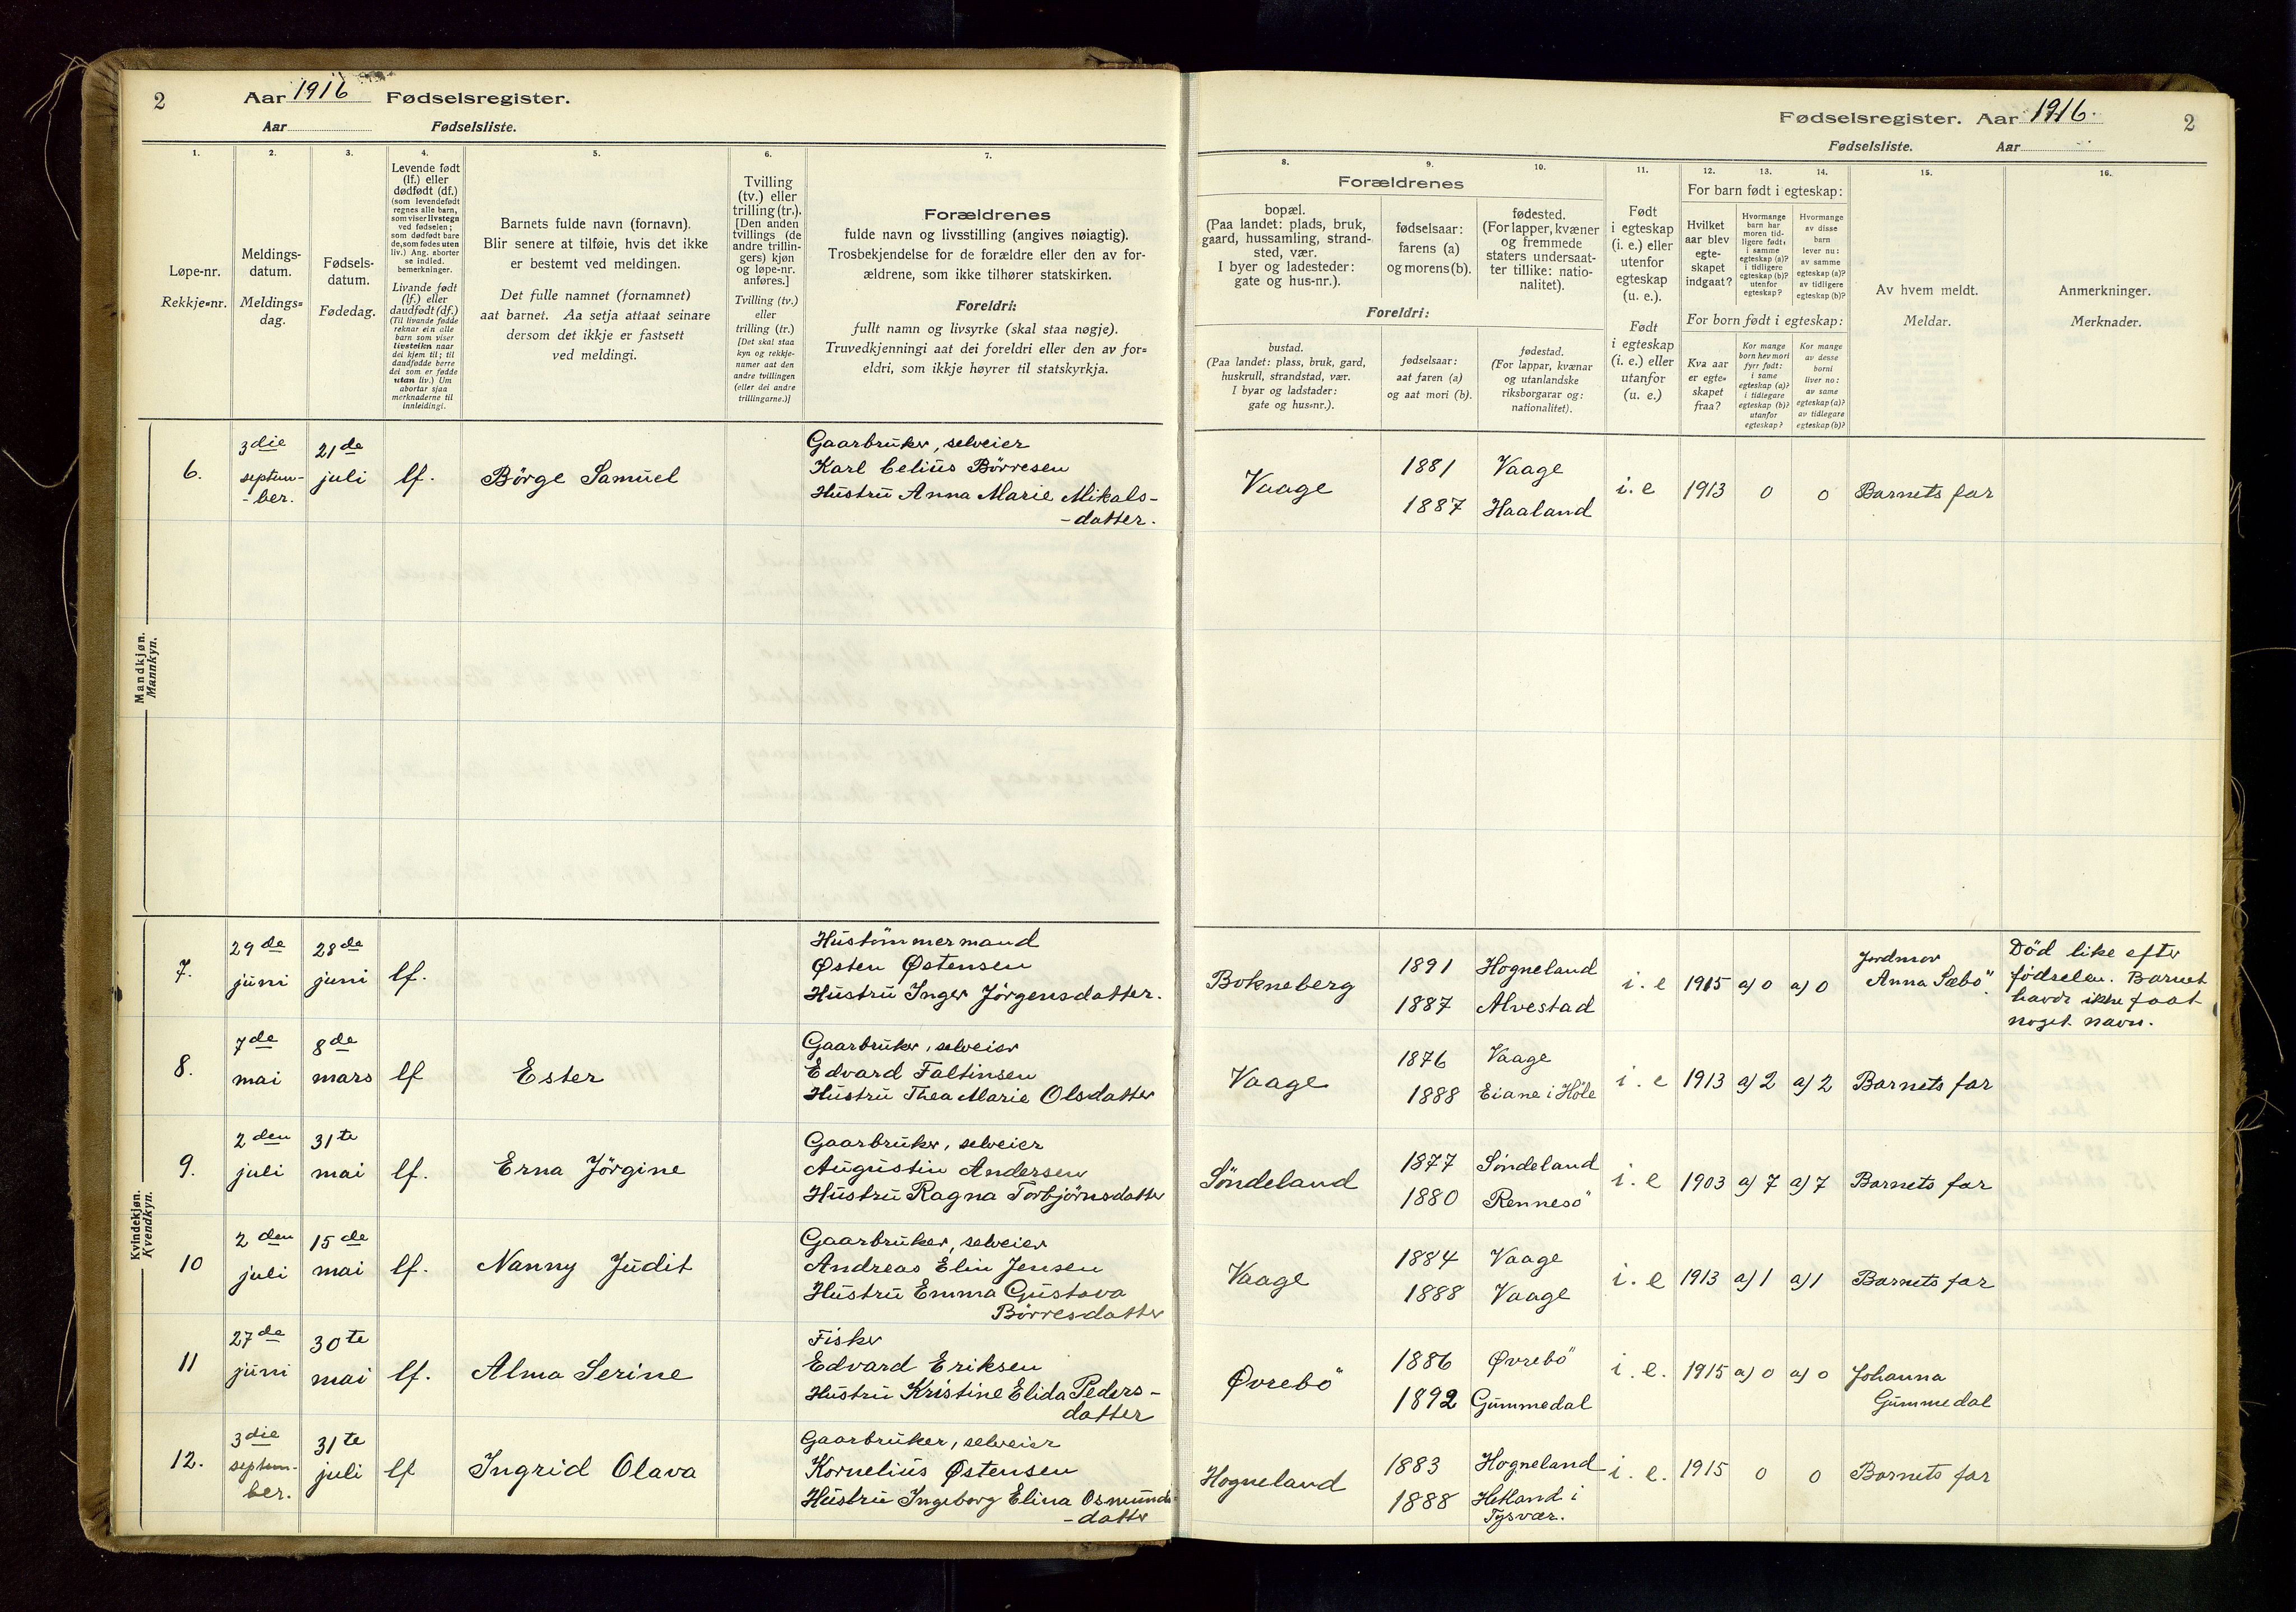 2 Aar 1916 Fødselsregister.
Aar Fødselsliste.
1. 2. 3. 4. 5. 6. 7.
Løpe-nr.
Rekkje=nr.
Meldings-
datum.
Meldings=
dag.
Fødsels-
datum.
Fødedag.
Levende født
(lf.) eller
dødfødt (df.)
(som levendefødt
regnes alle barn,
som viser livstegn
ved fødselen;
som dødfødt bare
de, som fødes uten
liv.) Ang. aborter
se indled.
bemerkninger.
Livande født
(lf.) eller
daudfødt (df.)
(Til livande fødde
reknar ein alle
barn som viser
livsteikn naar
dei kjem til; til
daudfødde berre
dei som er fødde
utan liv.) Um
abortar sjaa
merknaderne til
innleidingi.
Barnets fulde navn (fornavn).
Blir senere at tilføie, hvis det ikke
er bestemt ved meldingen.
Det fulle namnet (fornamnet)
aat barnet. Aa setja attaat seinare
dersom det ikkje er fastsett
ved meldingi.
Tvilling
(tv.) eller
trilling (tr.).
[Den anden
tvillings (de
andre trillin-
gers) kjøn
og løpe-nr.
anføres.]
Tvilling (tv.)
eller
trilling (tr.)
[Det skal staa
kyn og rekkje-
numer aat den
andre tvillingen
(eller dei andre
trillingarne.)]
Forældrenes
fulde navn og livsstilling (angives nøiagtig).
Trosbekjendelse for de forældre eller den av for-
ældrene, som ikke tilhører statskirken.
Foreldri:
fullt namn og livsyrke (skal staa nøgje).
Truvedkjenningi aat dei foreldri eller den av for=
eldri, som ikkje høyrer til statskyrkja.
Mandkjøn.
Mannkyn.
6.
3die
septem-
-ber.
21de
juli
lf.
Börge Samuel
Gaarbruker, selveier
Karl Celius Börresen
Hustru Anna Marie Mikals-
-datter.
Kvindekjøn.
Kvendkyn.
7.
29de
juni
28de
juni
lf.
Hustömmermand
Østen Østensen
Hustru Inger Jörgensdatter.
8.
7de
mai
8de
mars
lf
Ester
Gaarbruker, selveier
Edvard Faltinsen
Hustru Thea Marie Olsdatter
9.
2den
juli
31te
mai
lf.
Erna Jörgine
Gaarbruker, selveier
Augustin Andersen
Hustru Ragna Torbjörnsdatter
10
2den
juli
15de
mai
lf.
Nanny Judit
Gaarbruker, selveier
Andreas Elin Jensen
Hustru Emma Gustava
Börresdatter
11
27de
juni
30te
mai
lf.
Alma Serine
Fisker
Edvard Eriksen
Hustru Kristine Elida Peders-
datter
12.
3die
septem-
ber.
31te
juli
lf
Ingrid Olava
Gaarbruker, selveier
Kornelius Østensen
Hustru Ingeborg Elina Osmunds-
-datter
Fødselsregister. Aar 1916. 2
Fødselsliste. Aar
8. 9. 10. 11. 12. 13. 14. 15. 16.
Forældrenes
bopæl.
(Paa landet: plads, bruk,
gaard, hussamling, strand-
sted, vær.
I byer og ladesteder:
gate og hus-nr.).
fødselsaar:
farens (a)
og morens (b).
fødested.
(For lapper, kvæner
og fremmede
staters undersaat-
ter tillike: natio-
nalitet).
Foreldri:
bustad.
(Paa landet: plass, bruk, gard,
huskrull, strandstad, vær.
I byar og ladstader:
gate og hus=nr.).
fødselsaar:
aat faren (a)
og aat mori (b).
fødestad.
(For lappar, kvænar
og utanlandske
riksborgarar og:
nationalitet).
Født
i egteskap
(i. e.) eller
utenfor
egteskap
(u. e.).
Født
i egteskap
(i. e.) eller
utanfor
(u. e.)
For barn født i egteskap:
Hvilket
aar blev
egte-
skapet
indgaat?
Hvormange
barn har
moren tid-
ligere født:
i samme
egteskap (a)?
i tidligere
egteskap (b)?
utenfor
egteskap?
Hvormange
av disse
barn
lever nu:
av samme
egteskap (a)?
av tidligere
egteskap (b)?
For born født i egteskap:
Kva aar
er egte=
skapet
fraa?
Kor mange
born hev mori
fyrr født:
i same
egteskap (a)?
i tidlegare
egteskap (b)?
utanfor
egteskap?
Kor mange
av desse
borni
liver no:
av same
egteskap (a)?
av tidlegare
egteskap (b)?
Av hvem meldt.
Meldar.
Anmerkninger.
Merknader.
Vaage
1881 Vaage
1887 Haaland
i. e 1913 0 0 Barnets far
Bokneberg
1891 Hogneland
1887 Alvestad
i. e 1915 a) 0 a) 0
Jordmor
Anna Sæbö.
Död like efter
födselen. Barnet
havde ikke faat
noget navn.
Vaage
1876 Vaage
1888 Eiane i Höle
i. e 1913 a) 2 a) 2 Barnets far
Söndeland
1877 Söndeland
1880 Rennesö
i. e 1903 a) 7 a) 7 Barnets far
Vaage
1884 Vaage
1888 Vaage
i. e 1913 a) 1 a) 1 Barnets far
Øvrebö
1886 Øvrebö
1892 Gummedal
i. e. 1915 a) 0 a) 0 Johanna
Gummedal
Hogneland
1883 Hogneland
1888 Hetland i
Tysvær.
i. e. 1915 0 0 Barnets far